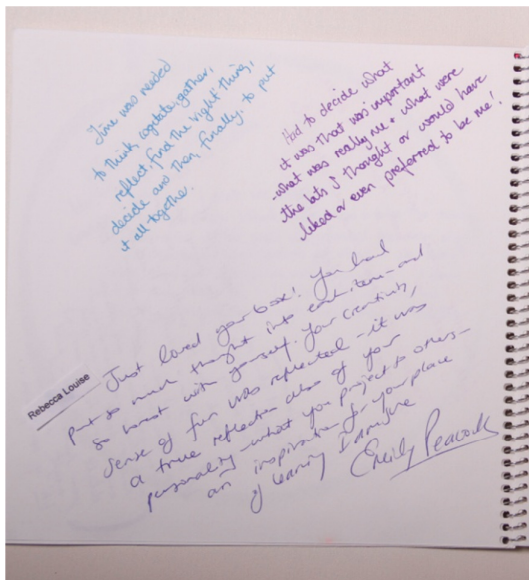 Time was needed
to think, cogitate, gather,
reflect, find the 'right' thing,
decide and then, finally, to put
it all together.
Had to decide what
it was that was important
- what was really me & what were
the bits I thought or would have
liked or even preferred to be me!
Rebecca Louise
Just loved your box! You had
put so much thought into each item - and
so honest with yourself. Your creativity,
sense of fun was reflected - it was
a true reflection also of your
personality - what you project to others -
an inspiration for your place
of learning I imagine
Emily Peacock